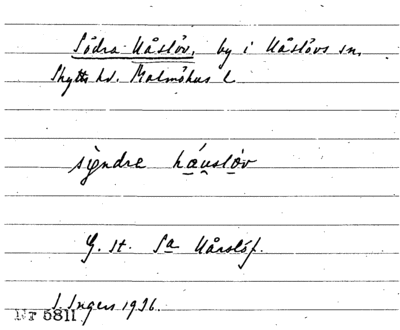 Södra Håslöv, by i Håslövs sn.
Skytts hd. Malmöhus l.
syndre håusløv
G. st. Sa Hårslöf.
I. Ingers 1936.
Nr 5811